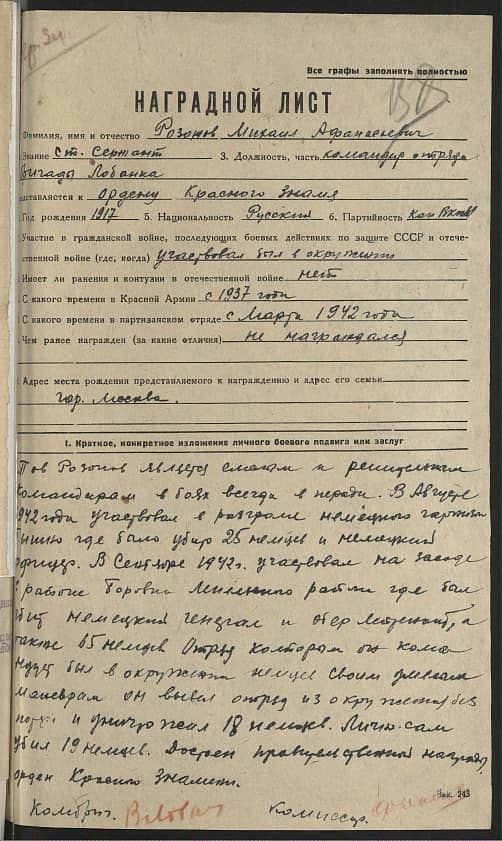 Все графы заполнять полностью
НАГРАДНОЙ ЛИСТ
Фамилия, имя и отчество Розонов Михаил Афанасьевич
Звание Ст. Сержант 3. Должность, часть командир отряда
бригады Лобанка
ставляется к Ордену Красного Знамя
Год рождения 1917 5. Национальность Русский 6. Партийность кан
Участие в гражданской войне, последующих боевых действиях по защите СССР и отече-
ственной войне (где, когда) участвовал был в окружении
Имеет ли ранения и контузии в отечественной войне нет
С какого времени в Красной Армии с 1937 года
С какого времени в партизанском отряде с Марта 1942 года
Чем ранее награжден (за какие отличия) не награждался
Адрес места рождения представляемого к награждению и адрес его семьи
гор. Москва.
I. Краткое, конкретное изложение личного боевого подвига или заслуг
Тов Розонов является смелым и решительным
командирам в боях всегда в переди. В Августе
1942 года участвовал в разгроме немецкого гарнизона
где было убито 25 немцев и немецкий
офицер. В Сентябре 1942г. участвовал на засаде
в районе Боровка района где был
убит немецкий генерал и обер лейтенант, а
также 65 немцев Отряд которам он кома
ндует был в окружении немцев своим умелым
маневрам он вывел отряд из окружения без
и уничтожил 18 немцев. Лично сам
убил 19 немцев. Достоен правительственной награды
орден Красного Знамени.
Комбриг. Комиссар.
Зак. 243